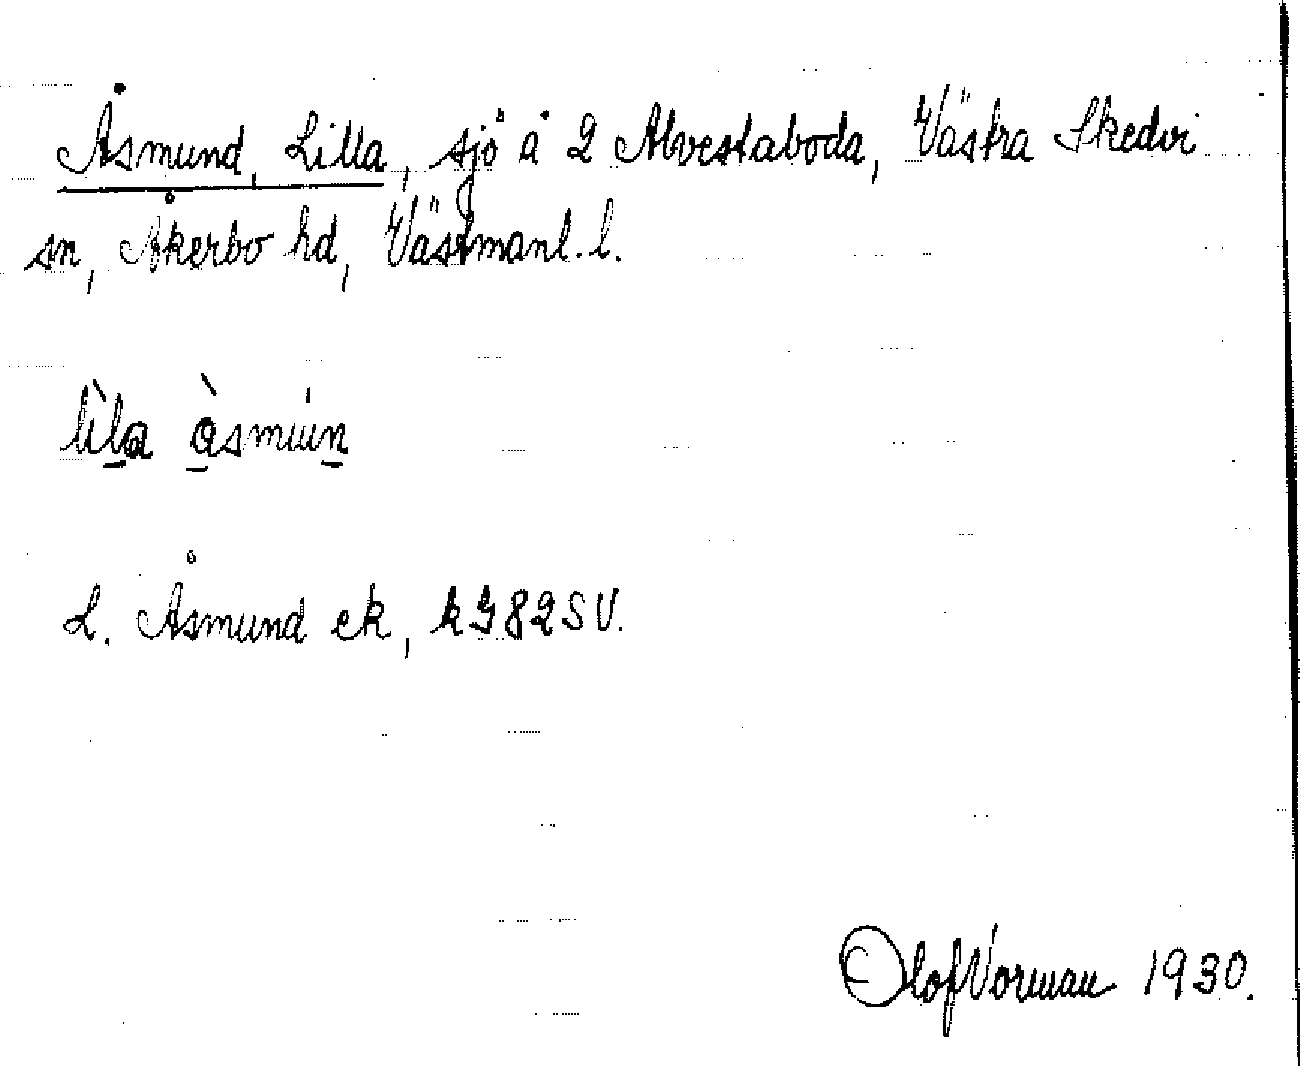 Åsmund, Lilla, sjö å 2 Alvestaboda, Västra Skedvi
sn, Åkerbo hd, Västmanl. l.
lìla àsmun
L. Åsmund ek, k982SV.
Olof Vorman 1930.